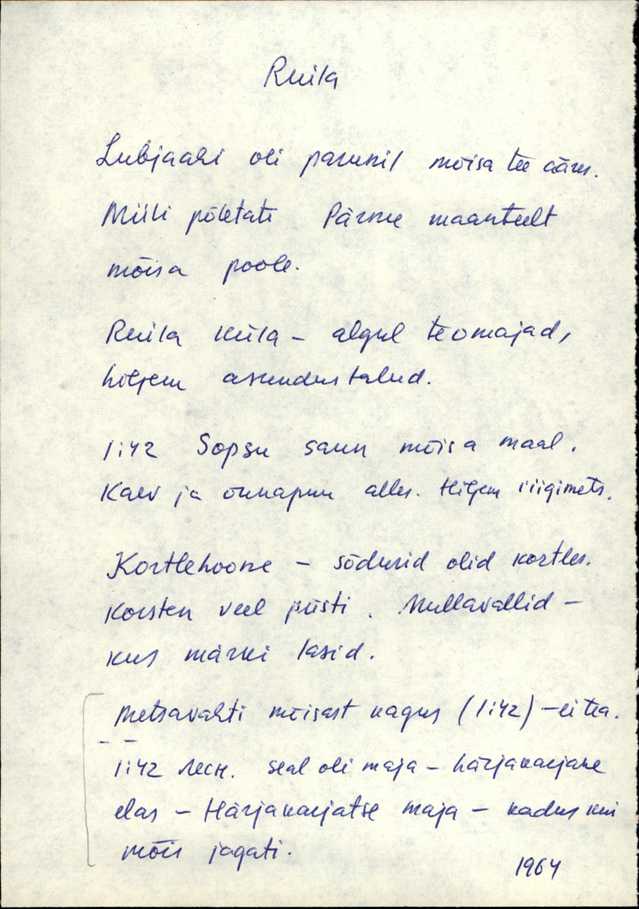 Ruila
Lubjaahi oli parunil mõisa tee ääres.
Miili põletati Pärnu maanteelt
mõisa poole.
Ruila küla - algul teomajad,
hiljem asundustalud.
1:42 Sopsu saun mõisa maal.
Kaev ja õunapuu alles. Hiljem riigimets.
Kortlehoone - sõdurid olid kortles.
Korsten veel püsti. Mullavallid -
kus märki lasid.
Metsavahti mõisast kagus (1:42) - ei tea.
1:42 лесн. seal oli maja - härjakarjane
elas - Härjakarjatse maja - kadus kui
mõis jagati.
1964